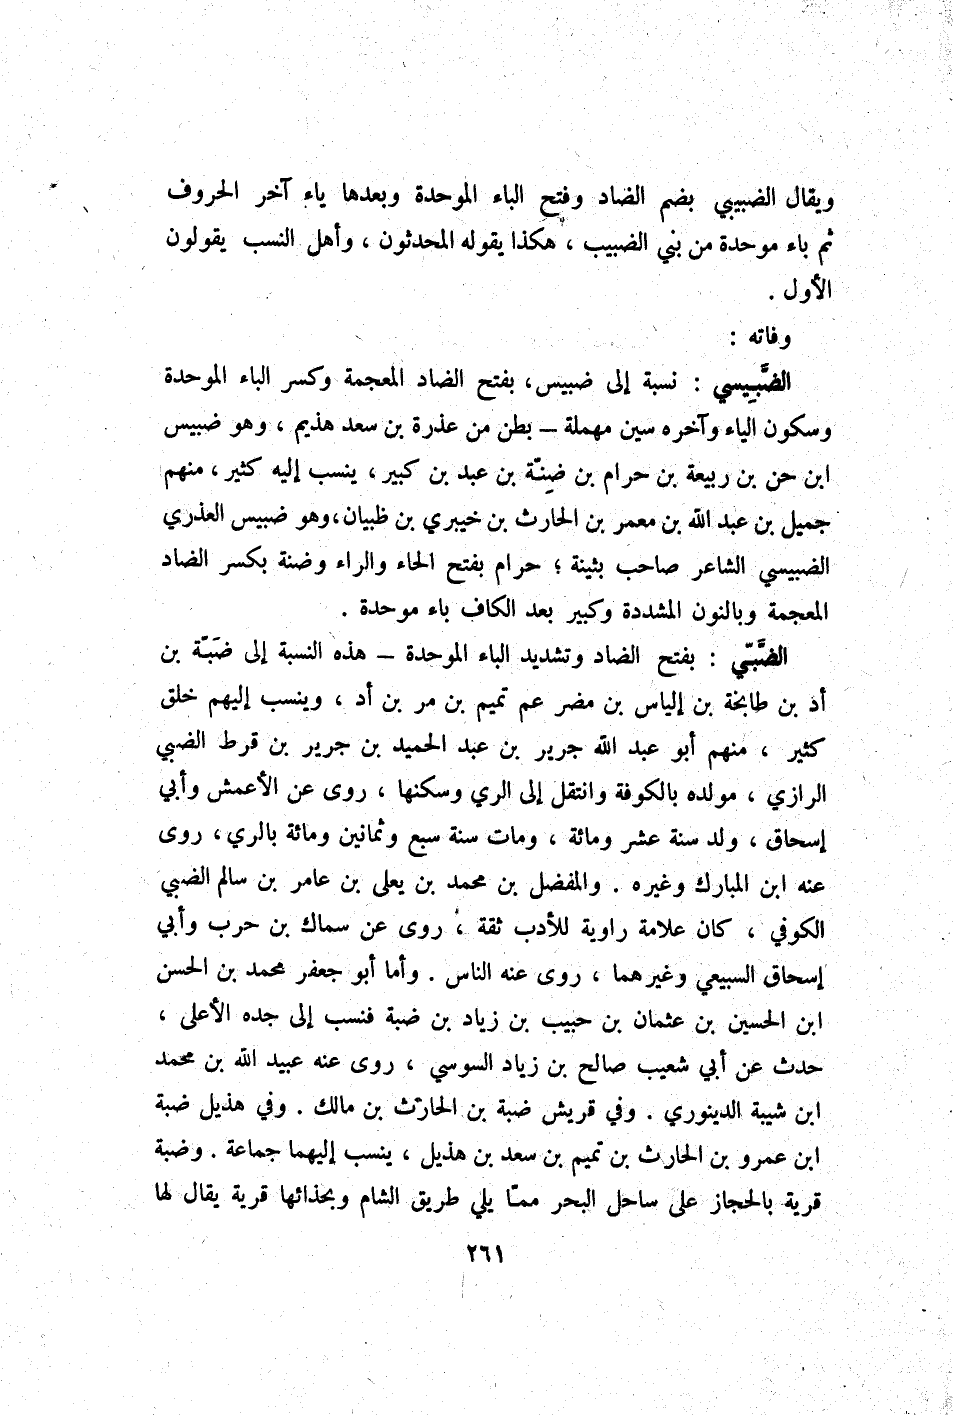 ويقال الضبيبي بضم الضاد وفتح الباء الموحدة وبعدها ياء آخر الحروف
ثم باء موحدة من بني الضبيب ، هكذا يقوله المحدثون ، وأهل النسب يقولون
الأول .
وفاته :
الضَّبِيسي : نسبة إلى ضبيس، بفتح الضاد المعجمة وكسر الباء الموحدة
وسكون الياء وآخره سين مهملة – بطن من عذرة بن سعد هذيم ، وهو ضبيس
ابن حن بن ربيعة بن حرام بن ضِنّة بن عبد بن كبير ، ينسب إليه كثير ، منهم
جميل بن عبد الله بن معمر بن الحارث بن خيبري بن ظبيان،وهو ضبيس العذري
الضبيسي الشاعر صاحب بثينة ؛ حرام بفتح الحاء والراء وضنة بكسر الضاد
المعجمة وبالنون المشددة وكبير بعد الكاف باء موحدة .
الضَّبّي : بفتح الضاد وتشديد الباء الموحدة – هذه النسبة إلى ضَبّة بن
أد بن طابخة بن إلياس بن مضر عم تميم بن مر بن أد ، وينسب إليهم خلق
كثير ، منهم أبو عبد الله جرير بن عبد الحميد بن جرير بن قرط الضبي
الرازي ، مولده بالكوفة وانتقل إلى الري وسكنها ، روى عن الأعمش وأبي
إسحاق ، ولد سنة عشر ومائة ، ومات سنة سبع وثمانين ومائة بالري، روى
عنه ابن المبارك وغيره . والمفضل بن محمد بن يعلى بن عامر بن سالم الضبي
الكوفي ، كان علامة راوية للأدب ثقة ، روى عن سماك بن حرب وأبي
إسحاق السبيعي وغيرهما ، روى عنه الناس . وأما أبو جعفر محمد بن الحسن
ابن الحسين بن عثمان بن حبيب بن زياد بن ضبة فنسب إلى جده الأعلى ،
حدث عن أبي شعيب صالح بن زياد السوسي ، روى عنه عبيد الله بن محمد
ابن شيبة الدينوري . وفي قريش ضبة بن الحارث بن مالك . وفي هذيل ضبة
ابن عمرو بن الحارث بن تميم بن سعد بن هذيل ، ينسب إليهما جماعة . وضبة
قرية بالحجاز على ساحل البحر ممّا يلي طريق الشام وبحذائها قرية يقال لها
٢٦١